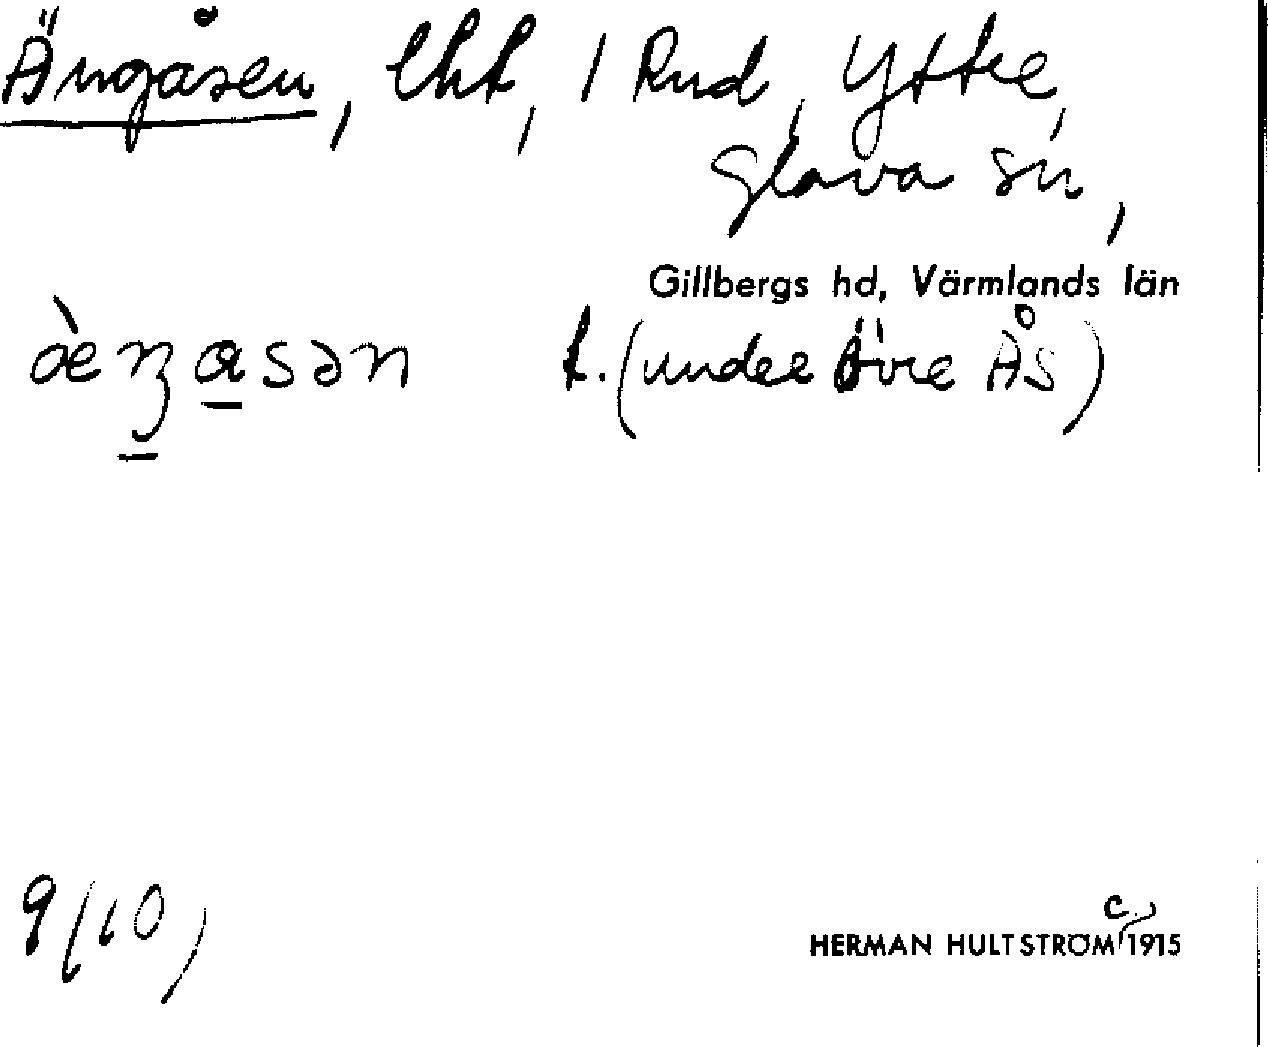 Ängåsen, lht, 1 Rud, Yttre,
Glava sn,
Gillbergs hd, Värmlands län
t. (under Övre Ås)
9/10,
c.
HERMAN HULTSTRÖM 1915